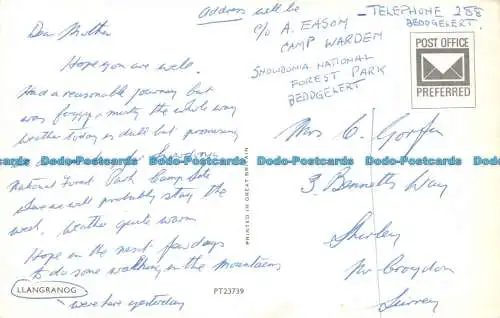 Address will be
c/o A. EASOM
CAMP WARDEN
SNOWDONIA NATIONAL
FOREST PARK
BEDDGELERT
— TELEPHONE 288
BEDDGELERT
POST OFFICE
PREFERRED
Dear Mother
Hope you are well.
Had a reasonable journey but
was foggy & misty the whole way
weather today is dull but promising
National Forest Park Camp Site
where we will probably stay the
week. Weather quite warm
Hope in the next few days
to do some walking in the Mountains
LLANGRANOG
were here yesterday
PRINTED IN GREAT BRITAIN
PT23739
Mrs C.
3, Bennetts Way
Shirley
Nr Croydon
Surrey
Dodo-Postcards Dodo-Postcards Dodo-Postcards Dodo-Postcards
Dodo-Postcards Dodo-Postcards Dodo-Postcards Dodo-Postcards